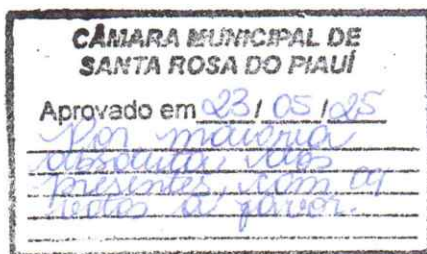 CÂMARA MUNICIPAL DE
SANTA ROSA DO PIAUÍ
Aprovado em 23/ 05 /25
Por maioria
absoluta, dos
presentes, com 09
votos a favor.